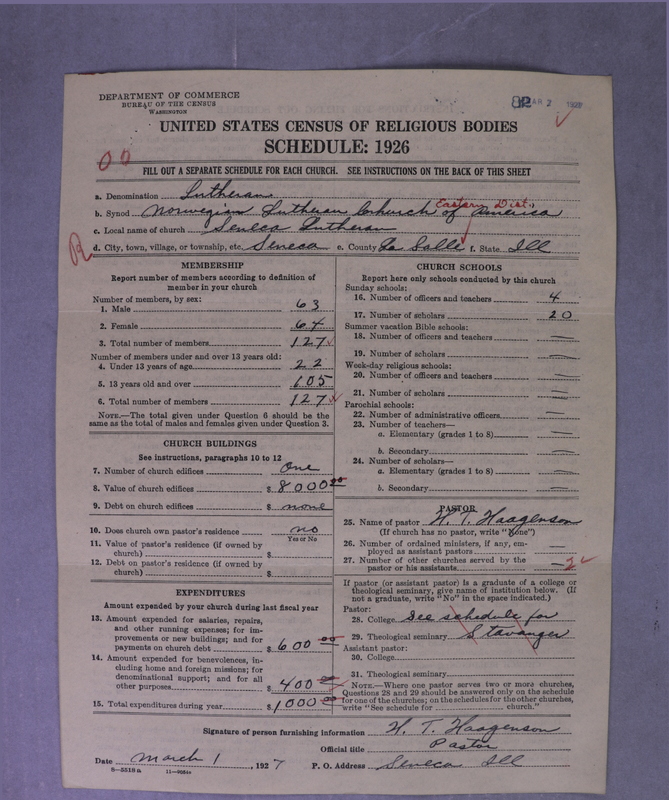 DEPARTMENT OF COMMERCE
BUREAU OF THE CENSUS
WASHINGTON
UNITED STATES CENSUS OF RELIGIOUS BODIES
SCHEDULE: 1926
00
FILL OUT A SEPARATE SCHEDULE FOR EACH CHURCH. SEE INSTRUCTIONS ON THE BACK OF THIS SHEET
a. Denomination Lutheran
Eastern Dist.
b. Synod Norwegian Lutheran Church of America
c. Local name of church Seneca Lutheran
R
d. City, town, village, or township, etc. Seneca e. County La Salle f. State Ill
MEMBERSHIP
Report number of members according to definition of
member in your church
Number of members, by sex:
1. Male 63
2. Female 64
3. Total number of members 127
Number of members under and over 13 years old:
4. Under 13 years of age 22
5. 13 years old and over 105
6. Total number of members 127
NOTE.—The total given under Question 6 should be the
same as the total of males and females given under Question 3.
CHURCH BUILDINGS
See instructions, paragraphs 10 to 12
7. Number of church edifices One
8. Value of church edifices $ 8000 00
9. Debt on church edifices $ none
10. Does church own pastor's residence no
Yes or No
11. Value of pastor's residence (if owned by
church) $
12. Debt on pastor's residence (if owned by
church) $
EXPENDITURES
Amount expended by your church during last fiscal year
13. Amount expended for salaries, repairs,
and other running expenses; for im-
provements or new buildings; and for
payments on church debt $ 600 00
14. Amount expended for benevolences, in-
cluding home and foreign missions; for
denominational support; and for all
other purposes $ 400 00
15. Total expenditures during year $ 1000 00
CHURCH SCHOOLS
Report here only schools conducted by this church
Sunday schools:
16. Number of officers and teachers 4
17. Number of scholars 20
Summer vacation Bible schools:
18. Number of officers and teachers —
19. Number of scholars —
Week-day religious schools:
20. Number of officers and teachers —
21. Number of scholars —
Parochial schools:
22. Number of administrative officers —
23. Number of teachers—
a. Elementary (grades 1 to 8) —
b. Secondary —
24. Number of scholars—
a. Elementary (grades 1 to 8) —
b. Secondary —
PASTOR
25. Name of pastor H. T. Haagenson
(If church has no pastor, write "None")
26. Number of ordained ministers, if any, em-
ployed as assistant pastors —
27. Number of other churches served by the
pastor or his assistants 2
If pastor (or assistant pastor) is a graduate of a college or
theological seminary, give name of institution below. (If
not a graduate, write "No" in the space indicated.)
Pastor:
28. College See schedule for
29. Theological seminary Stavanger
Assistant pastor:
30. College
31. Theological seminary
NOTE.—Where one pastor serves two or more churches,
Questions 28 and 29 should be answered only on the schedule
for one of the churches; on the schedules for the other churches,
write "See schedule for church."
Signature of person furnishing information H. T. Haagenson
Official title Pastor
Date March 1, 1927 P. O. Address Seneca Ill
8—5518a 11—9084